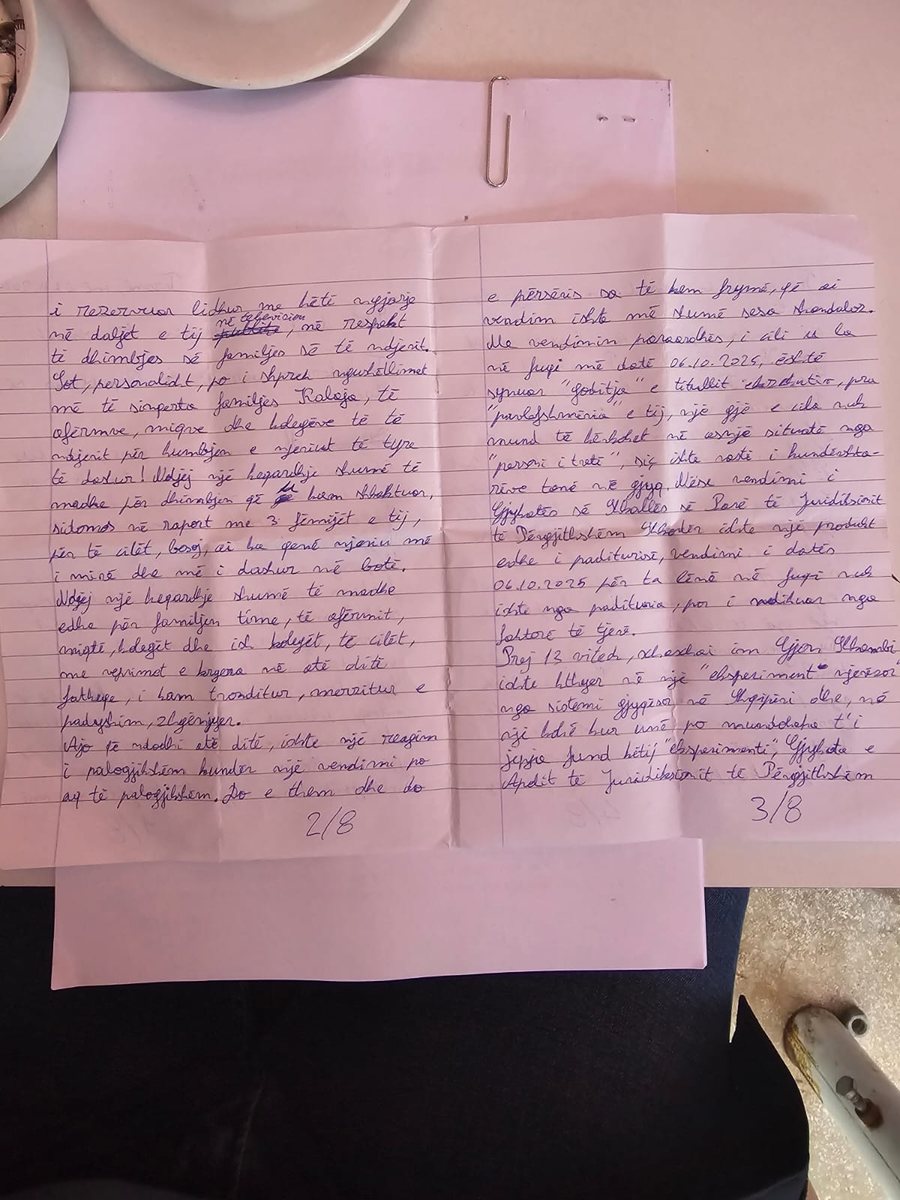 i rezervuar lidhur me këtë ngjarje
në daljet e tij në televizion, në respekt
të dhimbjes së familjes së të ndjerit.
Sot, personalisht, po i shpreh ngushëllimet
më të sinqerta familjes Kalaja, të
afërmve, miqve dhe kolegëve të të
ndjerit për humbjen e njeriut të tyre
të dashur! Ndjej një keqardhje shumë të
madhe për dhimbjen që kam shkaktuar,
sidomos në raport me 3 fëmijët e tij,
për të cilët, besoj, ai ka qenë njeriu më
i mirë dhe më i dashur në botë.
Ndjej një keqardhje shumë të madhe
edhe për familjen time, të afërmit,
miqtë, kolegët dhe ish kolegët, të cilët,
me veprimet e kryera në atë ditë
fatkeqe, i kam tronditur, mërzitur e
padyshim, zhgënjyer.
Ajo që ndodhi atë ditë, ishte një reagim
i palogjikshëm kundër një vendimi po
aq të palogjikshëm. Do e them dhe do
2/8
e përsëris sa të kem frymë, që ai
vendim ishte më shumë sesa skandaloz.
Me vendimin paraardhës, i cili u la
në fuqi më datë 06.10.2025, është
synuar "goditja" e titullit ekzekutiv, pra
"pavlefshmëria" e tij, një gjë e cila nuk
mund të kërkohet në asnjë situatë nga
"personi i tretë", siç ishte rasti i kundërshta-
rëve tanë në gjyq. Nëse vendimi i
Gjykatës së Shkallës së Parë të Juridiksionit
të Përgjithshëm Shkodër ishte një produkt
edhe i paditurisë, vendimi i datës
06.10.2025 për ta lënë në fuqi nuk
ishte nga padituria, por i ndikuar nga
faktorë të tjerë.
Prej 13 vitesh, xhaxhai im Gjon Shkambi
ishte kthyer në një "eksperiment" njerëzor
nga sistemi gjyqësor në Shqipëri dhe, në
një kohë kur unë po mundohesha t'i
jepja fund këtij "eksperimenti", Gjykata e
Apelit të Juridiksionit të Përgjithshëm
3/8